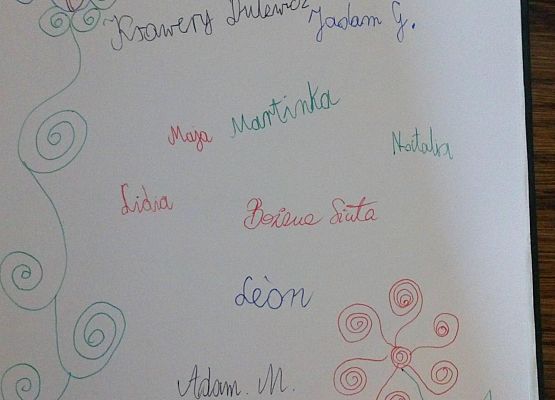 Ksawery Dulewicz
Jadam G.
Maja Martinka
Natalia
Lidia
Siuta
Lèon
Adam. M.